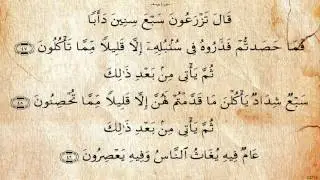 قَالَ تَزْرَعُونَ سَبْعَ سِنِينَ دَأَبًا
فَمَا حَصَدتُّمْ فَذَرُوهُ فِي سُنۢبُلِهِۦٓ إِلَّا قَلِيلًا مِّمَّا تَأْكُلُونَ ٤٧
ثُمَّ يَأْتِي مِنۢ بَعْدِ ذَٰلِكَ
سَبْعٌ شِدَادٌ يَأْكُلْنَ مَا قَدَّمْتُمْ لَهُنَّ إِلَّا قَلِيلًا مِّمَّا تُحْصِنُونَ ٤٨
ثُمَّ يَأْتِي مِنۢ بَعْدِ ذَٰلِكَ
عَامٌ فِيهِ يُغَاثُ النَّاسُ وَفِيهِ يَعْصِرُونَ ٤٩